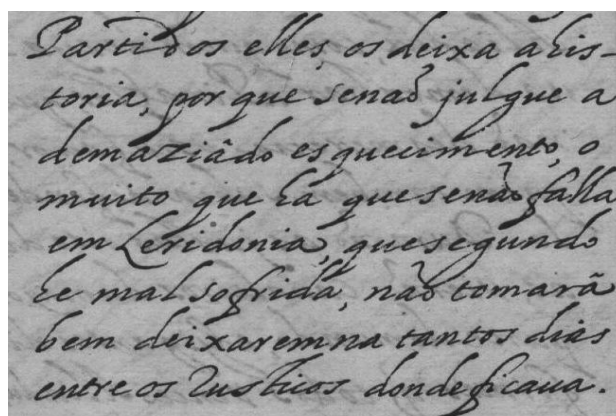 Partidos elles, os deixa a his-
toria, por que senaõ julgue a
demaziâdo esquecimento, o
muito que ha que senaõ falla
em Leridonia, que segundo
he mal sofrida, naõ tomarâ
bem deixaremna tantos dias
entre os Rusticos donde ficaua.